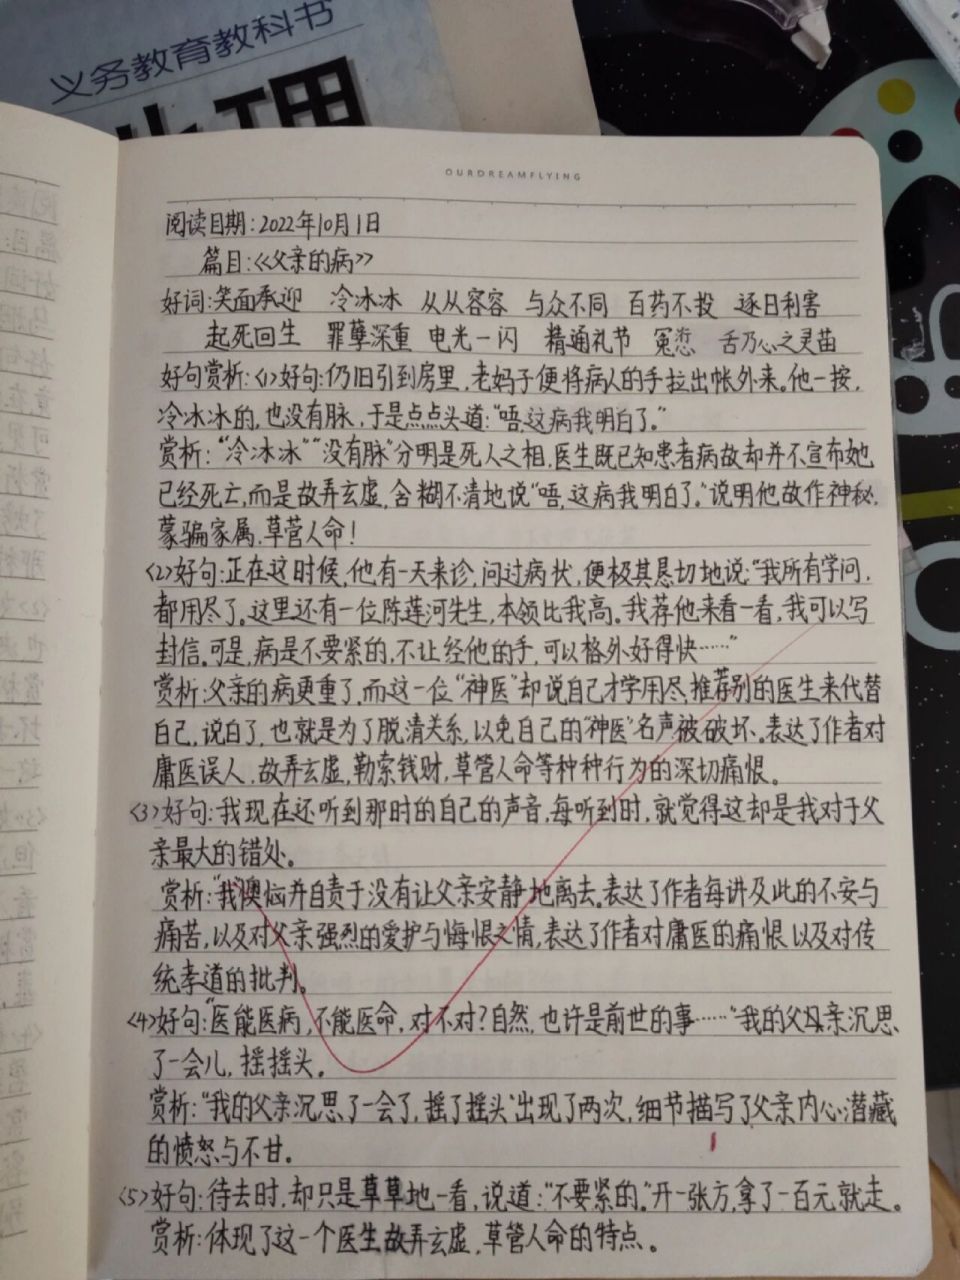 义务教育教科书
地理
OURDREAMFLYING
阅读日期:2022年10月1日
篇目:《父亲的病》
好词:笑面承迎 冷冰冰 从从容容 与众不同 百药不投 逐日利害
起死回生 罪孽深重 电光一闪 精通礼节 冤愆 舌乃心之灵苗
好句赏析:<1>好句:仍旧引到房里,老妈子便将病人的手拉出帐外来。他一按,
冷冰冰的,也没有脉,于是点点头道:“唔,这病我明白了。”
赏析:“冷冰冰”“没有脉”分明是死人之相,医生既已知患者病故却并不宣布她
已经死亡,而是故弄玄虚,含糊不清地说“唔,这病我明白了。”说明他故作神秘,
蒙骗家属,草菅人命!
<2>好句:正在这时候,他有一天来诊,问过病状,便极其恳切地说:“我所有学问,
都用尽了。这里还有一位陈莲河先生,本领比我高。我荐他来看一看,我可以写
封信。可是,病是不要紧的,不让经他的手,可以格外好得快……”
赏析:父亲的病更重了,而这一位“神医”却说自己才学用尽,推荐别的医生来代替
自己,说白了,也就是为了脱清关系,以免自己的“神医”名声被破坏。表达了作者对
庸医误人,故弄玄虚,勒索钱财,草菅人命等种种行为的深切痛恨。
<3>好句:我现在还听到那时的自己的声音,每听到时,就觉得这却是我对于父
亲最大的错处。
赏析:“我”懊恼并自责于没有让父亲安静地离去。表达了作者每讲及此的不安与
痛苦,以及对父亲强烈的爱护与悔恨之情,表达了作者对庸医的痛恨以及对传
统孝道的批判。
<4>好句:“医能医病,不能医命,对不对?自然,也许是前世的事……”我的父母亲沉思
了一会儿,摇摇头。
赏析:“我的父亲沉思了一会了,摇了摇头”出现了两次,细节描写了父亲内心潜藏
的愤怒与不甘。
<5>好句:待去时,却只是草草地一看,说道:“不要紧的。”开一张方,拿了一百元就走。
赏析:体现了这一个医生故弄玄虚,草菅人命的特点。